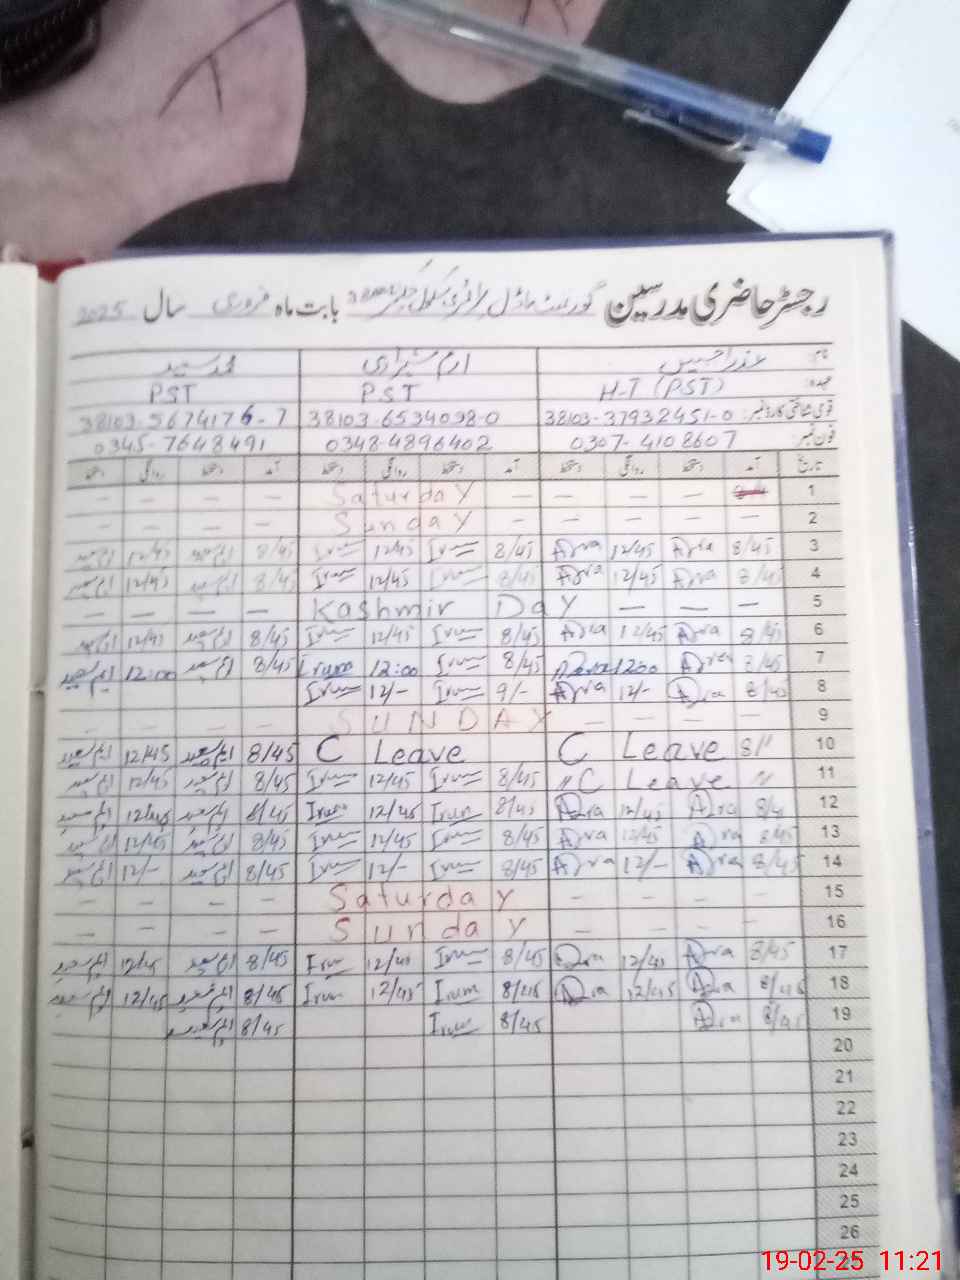 رجسٹر حاضری مدرسین گورنمنٹ ماڈل پرائمری سکول بابت ماہ فروری سال 2025
نام: عذرا حسین ارم شیرازی محمد سعید
عہدہ: H-T (PST) PST PST
قومی شناختی کارڈ نمبر: 38103-37932451-0 38103-6534098-0 38103-5674176-7
فون نمبر: 0307-4108607 0348-4896402 0345-7648491
تاریخ آمد دستخط روانگی دستخط آمد دستخط روانگی دستخط آمد دستخط روانگی دستخط
1 — — — Saturday — — — —
2 — — — Sunday — — — —
3 8/45 Azra 12/45 Azra 8/45 Irum 12/45 Irum 8/45 12/45
4 8/45 Azra 12/45 Azra 8/45 Irum 12/45 Irum 8/45 12/45
5 — — — Kashmir Day — — — —
6 8/45 Azra 12/45 Azra 8/45 Irum 12/45 Irum 8/45 12/45
7 8/45 Azra 12:00 Azra 8/45 Irum 12:00 Irum 8/45 12:00
8 8/45 Azra 12/- Azra 9/- Irum 12/- Irum
9 — — — SUNDAY — — — —
10 8/" C Leave C Leave 8/45 12/45
11 " C Leave " 8/45 Irum 12/45 Irum 8/45 12/45
12 8/45 Azra 12/45 Azra 8/45 Irum 12/45 Irum 8/45 12/45
13 8/45 Azra 12/45 Azra 8/45 Irum 12/45 Irum 8/45 12/45
14 8/45 Azra 12/- Azra 8/45 Irum 12/- Irum 8/45 12/-
15 — — — Saturday — — — —
16 — — — Sunday — — — —
17 8/45 Azra 12/45 Azra 8/45 Irum 12/45 Irum 8/45 12/45
18 8/45 Azra 12/45 Azra 8/45 Irum 12/45 Irum 8/45 12/45
19 8/45 Azra 8/45 Irum 8/45
20
21
22
23
24
25
26
19-02-25 11:21